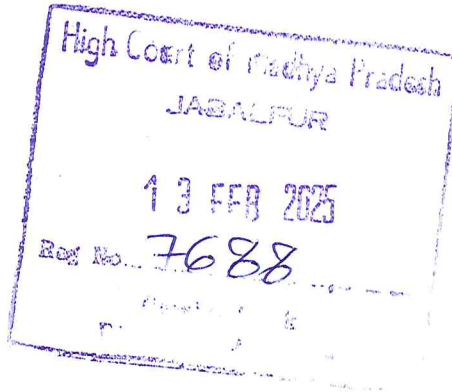 High Court of Madhya Pradesh
JABALPUR
13 FEB 2025
Reg No. 7688